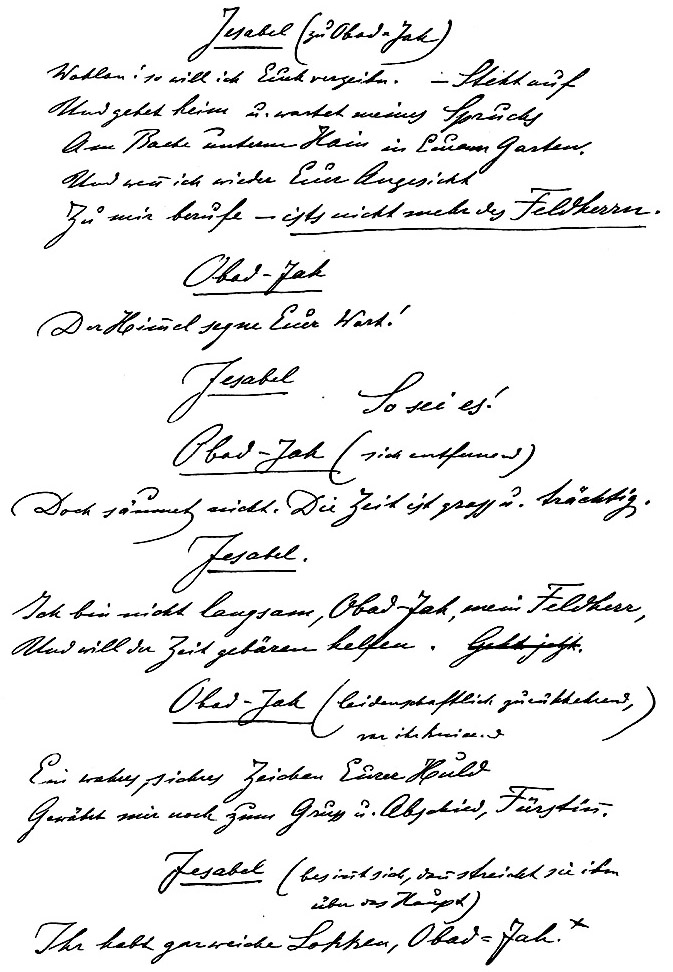 Jesabel (zu Obad-Jah)
Wohlan! so will ich Euch vergeben. – Steht auf
Und gehet heim u. wartet meines Spruchs
Am Bache unterm Hain in Eurem Garten.
Und wen̅ ich wieder Euer Angesicht
Zu mir berufe – ists nicht mehr des Feldherrn.
Obad-Jah
Der Him̅el segne Euer Wort!
Jesabel
So sei es!
Obad-Jah (sich entfernend)
Doch säumet nicht. Die Zeit ist gross u. trächtig.
Jesabel.
Ich bin nicht langsam, Obad-Jah, mein Feldherr,
Und will der Zeit gebären helfen. Geht jetzt.
Obad-Jah (leidenschaftlich zurückkehrend,
vor ihr knieend)
Ein wahres, sichres Zeichen Eurer Huld
Gewährt mir noch zum Gruss u. Abschied, Fürstin̅.
Jesabel (besin̅t sich, dan̅ streicht sie ihm
über das Haupt)
Ihr habt gar weiche Locken, Obad=Jah.×